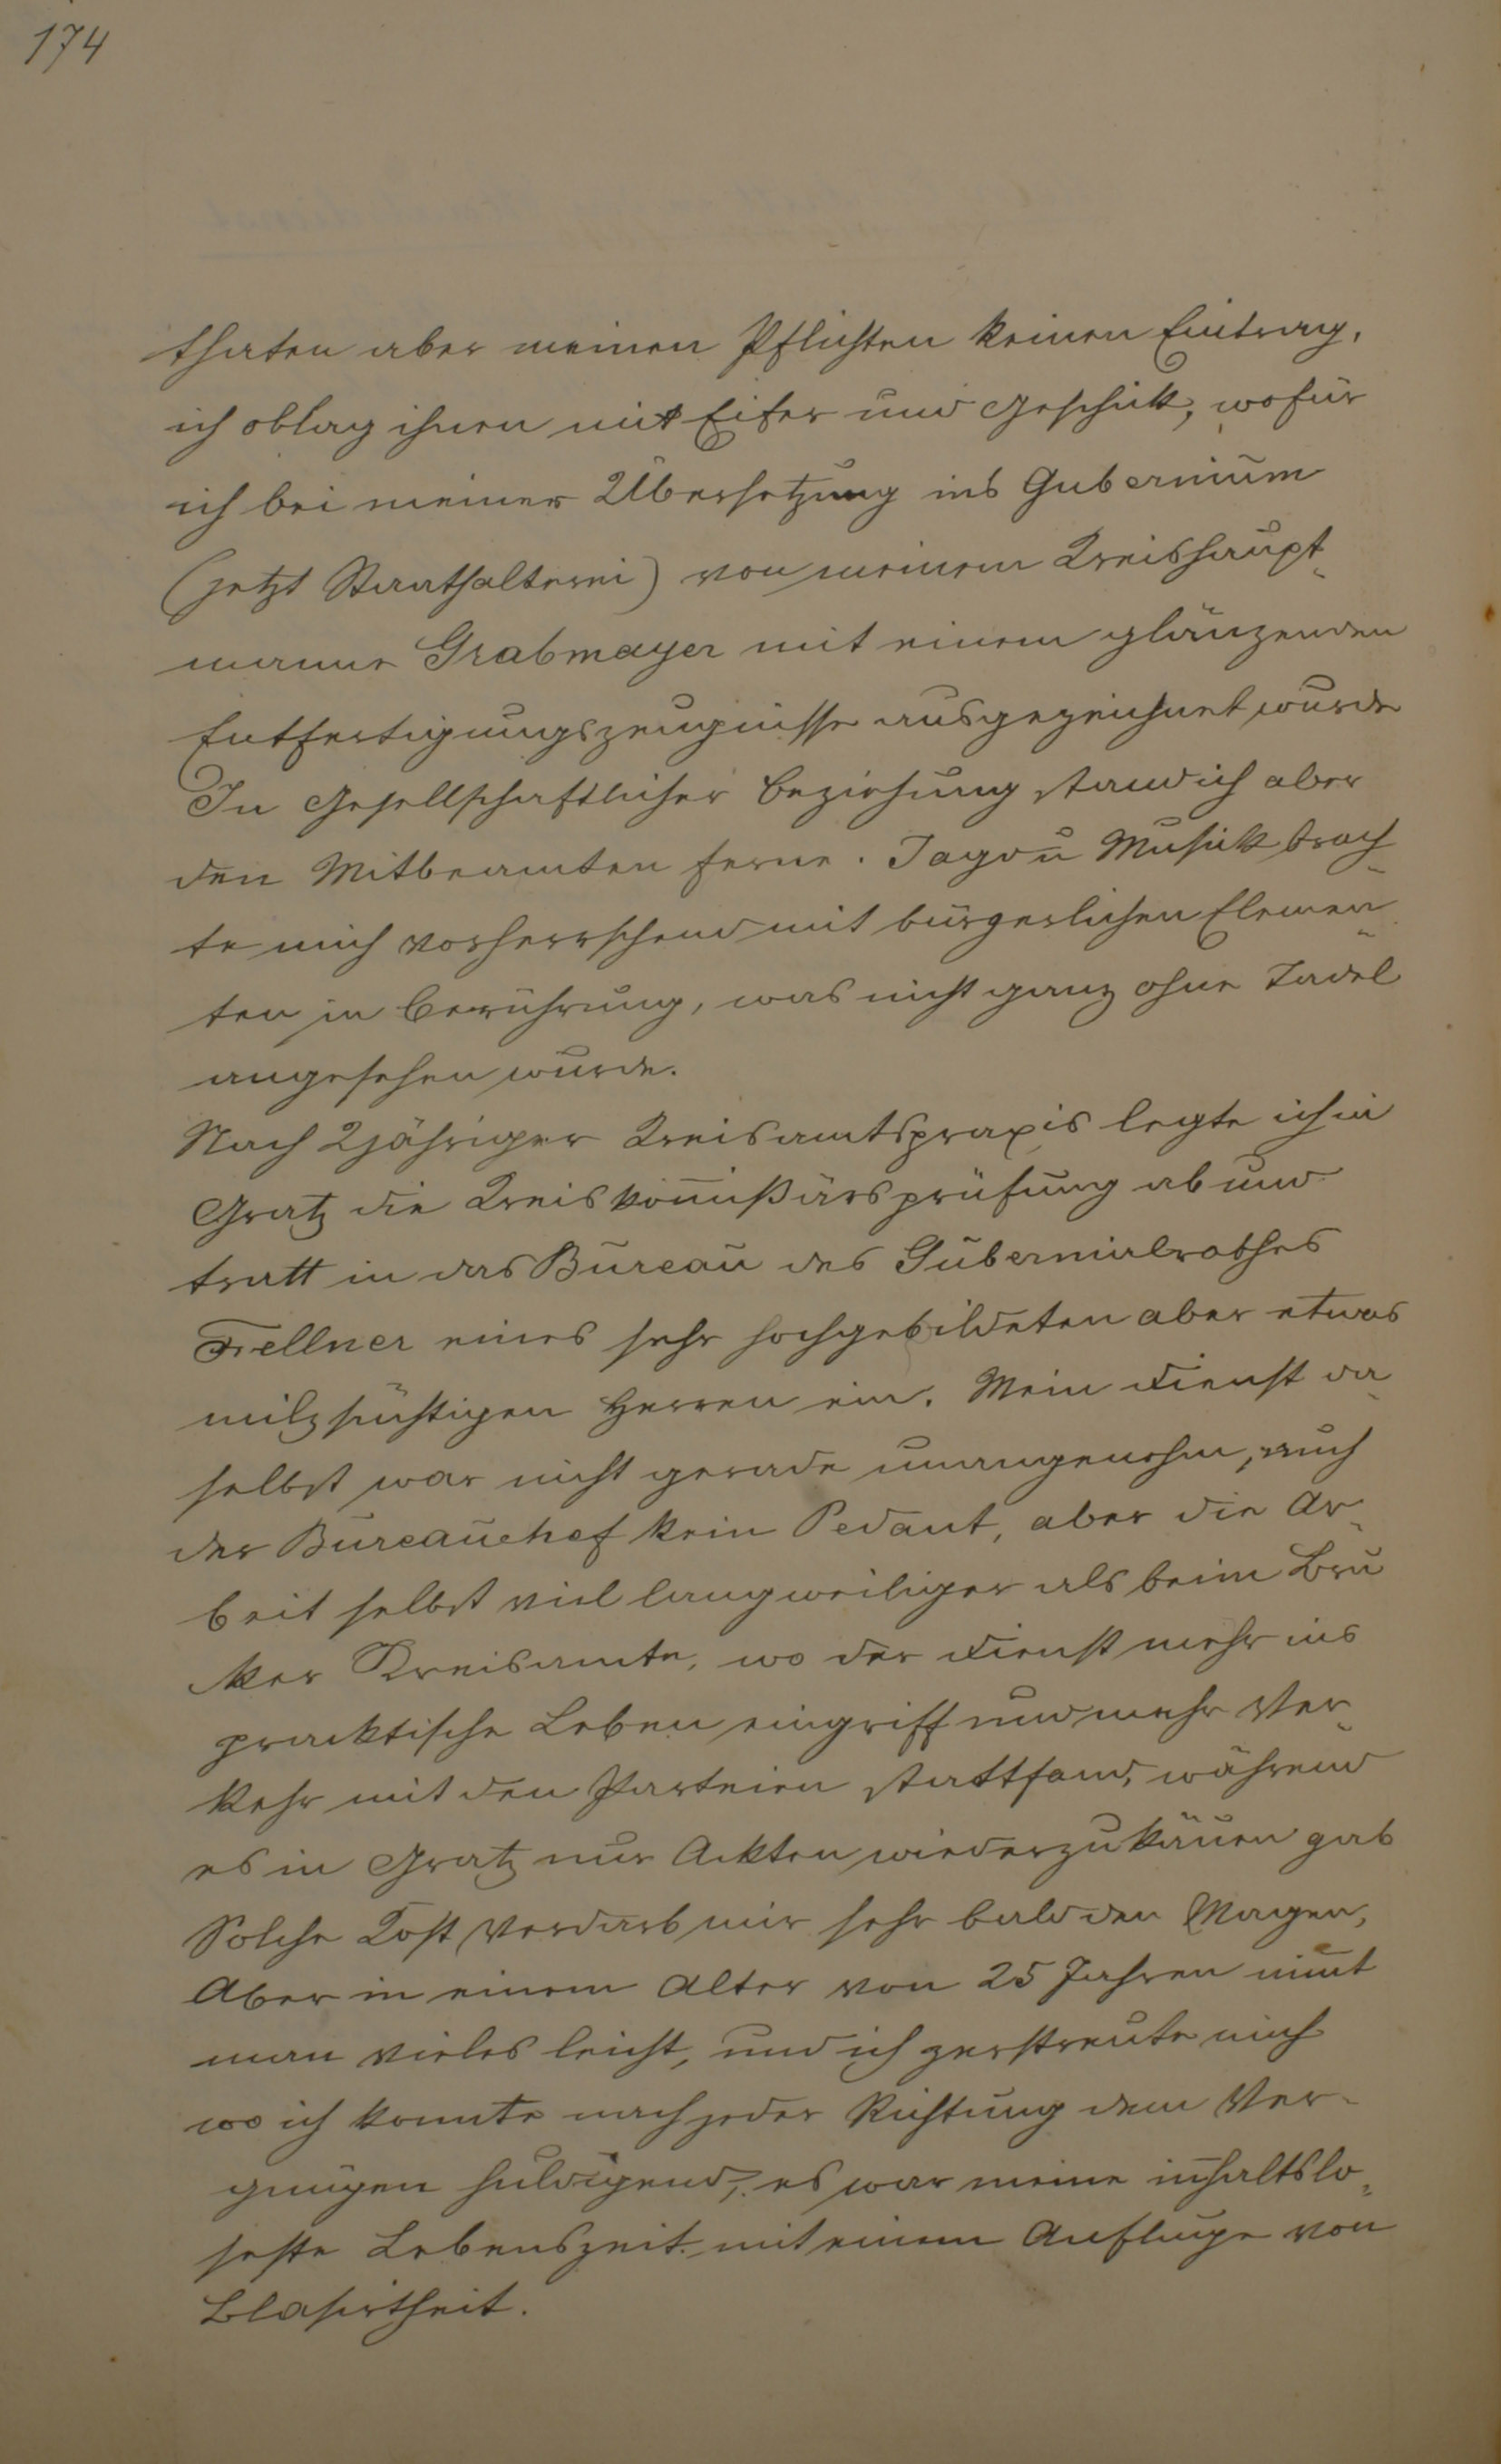 174
thaten aber meinen Pflichten keinen Eintrag,
ich oblag ihnen mit Eifer und Geschikk, wofür
ich bei meiner Übersetzung ins Gubernium
(jetzt Staathalterei) von meinem Kreishaupt-
manne Grabmayer mit einem glänzenden
Entfertigungszeugnisse ausgezeichnet wurde
In Gesellschaftlicher Beziehung stand ich aber
den Mitbeamten ferne. Jagd u Musikk brach-
te mich vorherrschend mit bürgerlichen Elemen-
ten in Berührung, was nicht ganz ohne Tadel
angesehen wurde.
Nach 2jähriger Kreisamtspraxis legte ich in
Gratz die Kreiskom̄ißärsprüfung ab und
tratt in das Bureau des Gubernialrathes
Fellner eines sehr hochgebildeten aber etwas
milzsüchtigen Herren ein. Mein Dienst da-
selbst war nicht gerade unangenehm, auch
der Bureauchef kein Pedant, aber die Ar-
beit selbst viel langweiliger als beim Bru
kker Kreisamte, wo der Dienst mehr ins
pracktische Leben eingriff und mehr Ver-
kehr mit den Parteien stattfand, während
es in Gratz nur Ackten wiederzukäuen gab
Solche Kost verdarb mir sehr bald den Magen,
Aber in einem Alter von 25 Jahren nim̄t
man vieles leicht, und ich zerstreute mich
wo ich konnte nach jeder Richtung dem Ver-
gnügen huldigend, es war meine inhaltslo-
seste Lebenszeit mit einem Anfluge von
Blasirtheit.